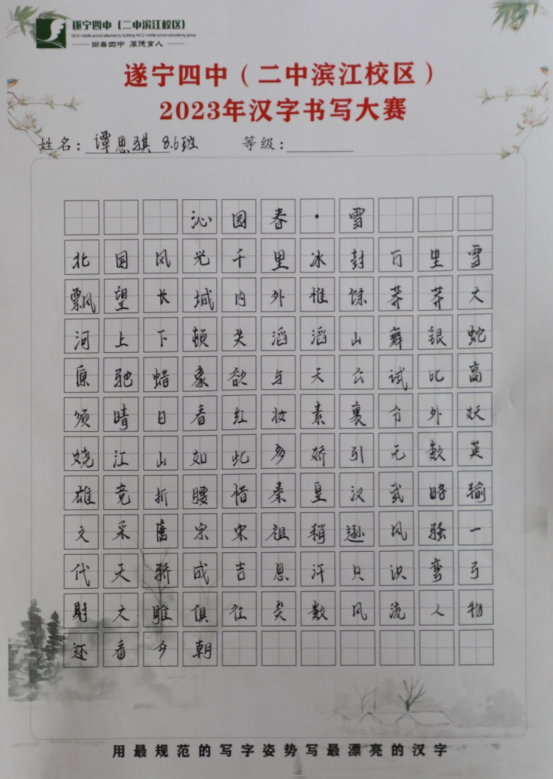 遂宁四中（二中滨江校区）
尚善四中 厚德育人
遂宁四中（二中滨江校区）
2023年汉字书写大赛
姓名：谭思骐 8.6班 等级：
沁园春·雪
北国风光千里冰封万里雪
飘望长城内外惟馀莽莽大
河上下顿失滔滔山舞银蛇
原驰蜡象欲与天公试比高
须晴日看红妆素裹分外妖
娆江山如此多娇引无数英
雄竞折腰惜秦皇汉武略输
文采唐宗宋祖稍逊风骚一
代天骄成吉思汗只识弯弓
射大雕俱往矣数风流人物
还看今朝
用最规范的写字姿势写最漂亮的汉字